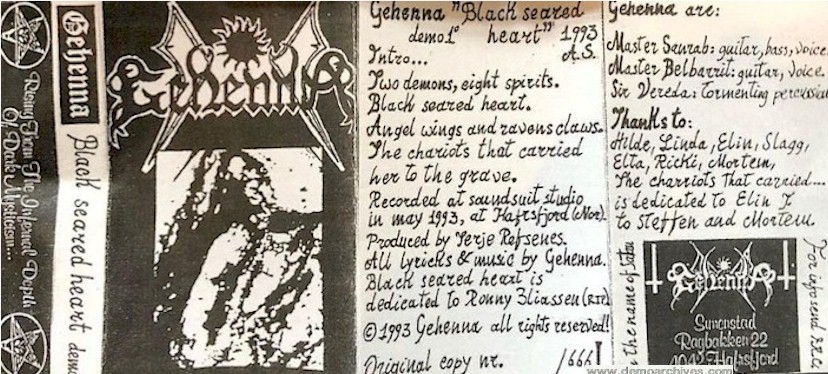 Rising From The Infernal Depth
Of Dark Mysticism...
Gehenna Black seared heart demo
Gehenna
Gehenna "Black seared
demo 1° heart" 1993
Intro... A.S.
Two demons, eight spirits.
Black seared heart.
Angel wings and ravens claws.
The chariots that carried
her to the grave.
Recorded at soundsuit studio
in may 1993, at Hafrsfjord (Nor).
Produced by Terje Refsenes.
All lyricks & music by Gehenna.
Black seared heart is
dedicated to Ronny Eliassen (RIP)
©1993 Gehenna all rights reserved!
Original copy nr. /666
Gehenna are:
Master Sanrab: guitar, bass, voice
Master Belbarrit: guitar, voice.
Sir Vereda: Tormenting percussion
Thanks to:
Hilde, Linda, Elin, Slagg,
Elta, Ricki, Mortem,
The charriots that carried...
is dedicated to Elin T
to Steffen and Mortem
In the name of satan
Gehenna
Sunonstad
Ragbakken 22
4043 Hafrsfjord
For info send I.R.C.
www.demoarchives.com